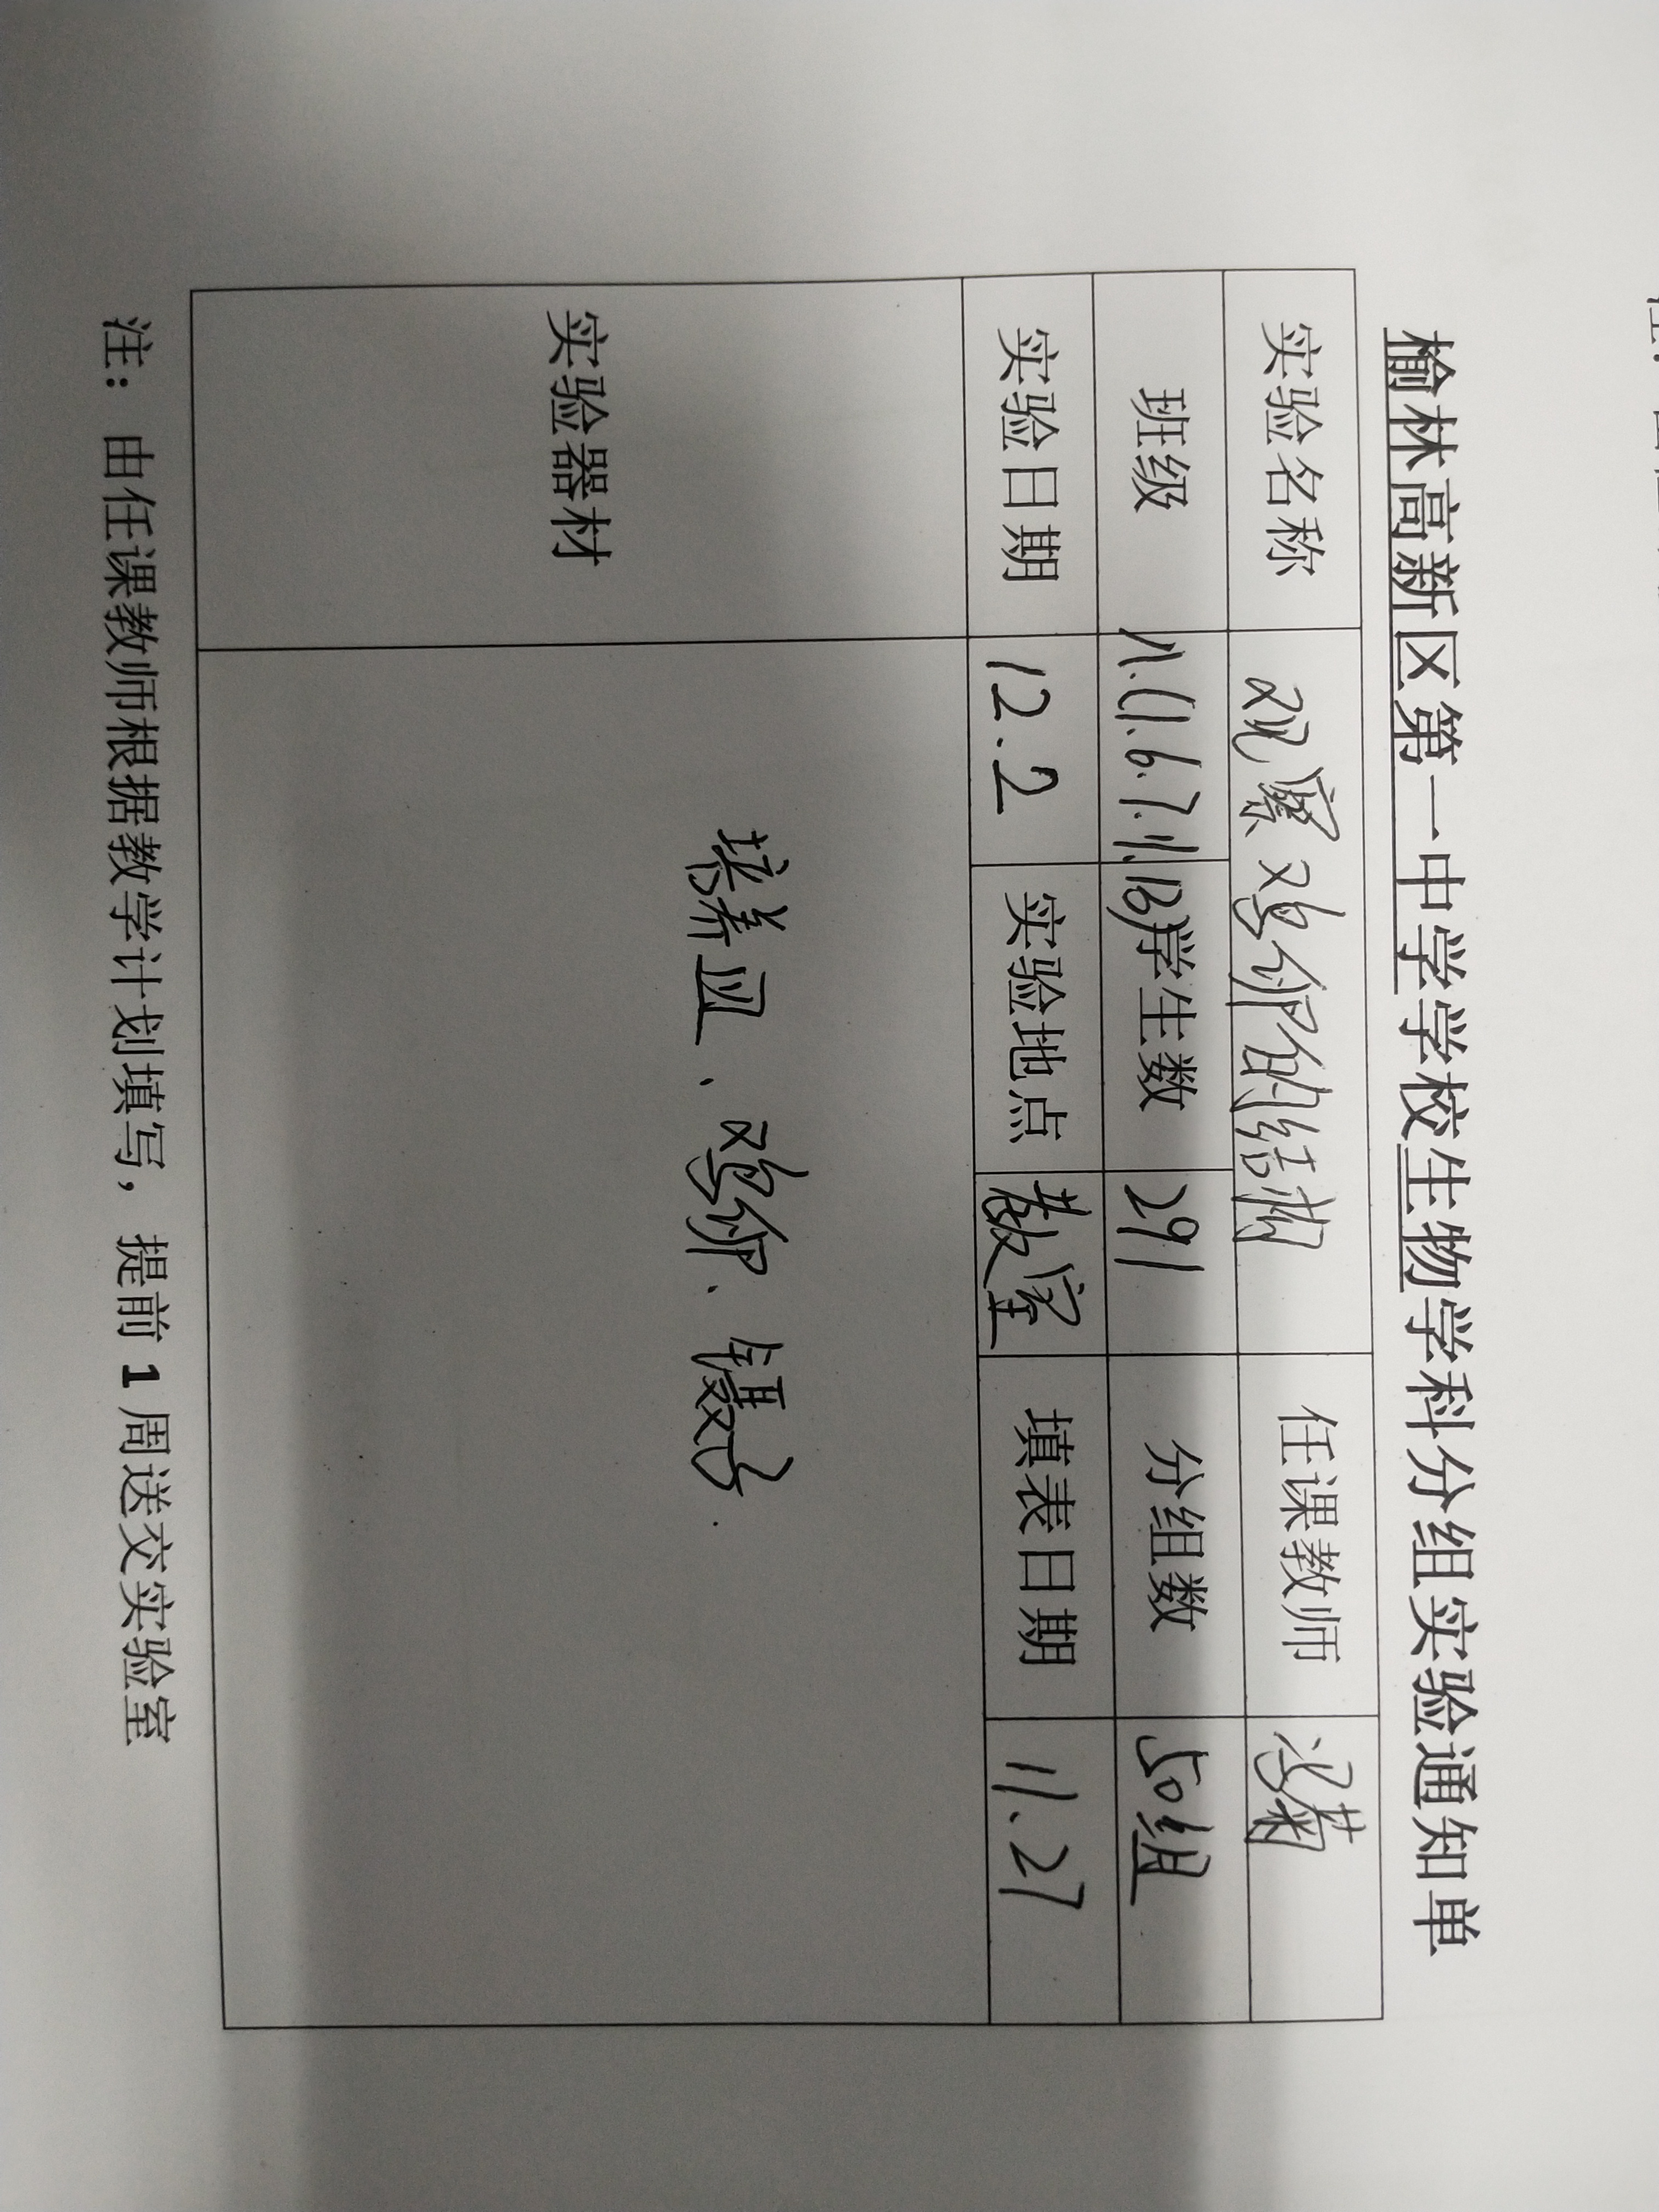 榆林高新区第一中学学校生物学科分组实验通知单
实验名称 观察鸡卵的结构 任课教师 冯菊
班级 八.(1.6.7.11.13) 学生数 291 分组数 50组
实验日期 12.2 实验地点 教室 填表日期 11.27
实验器材 培养皿、鸡卵、镊子.
注：由任课教师根据教学计划填写，提前 1 周送交实验室